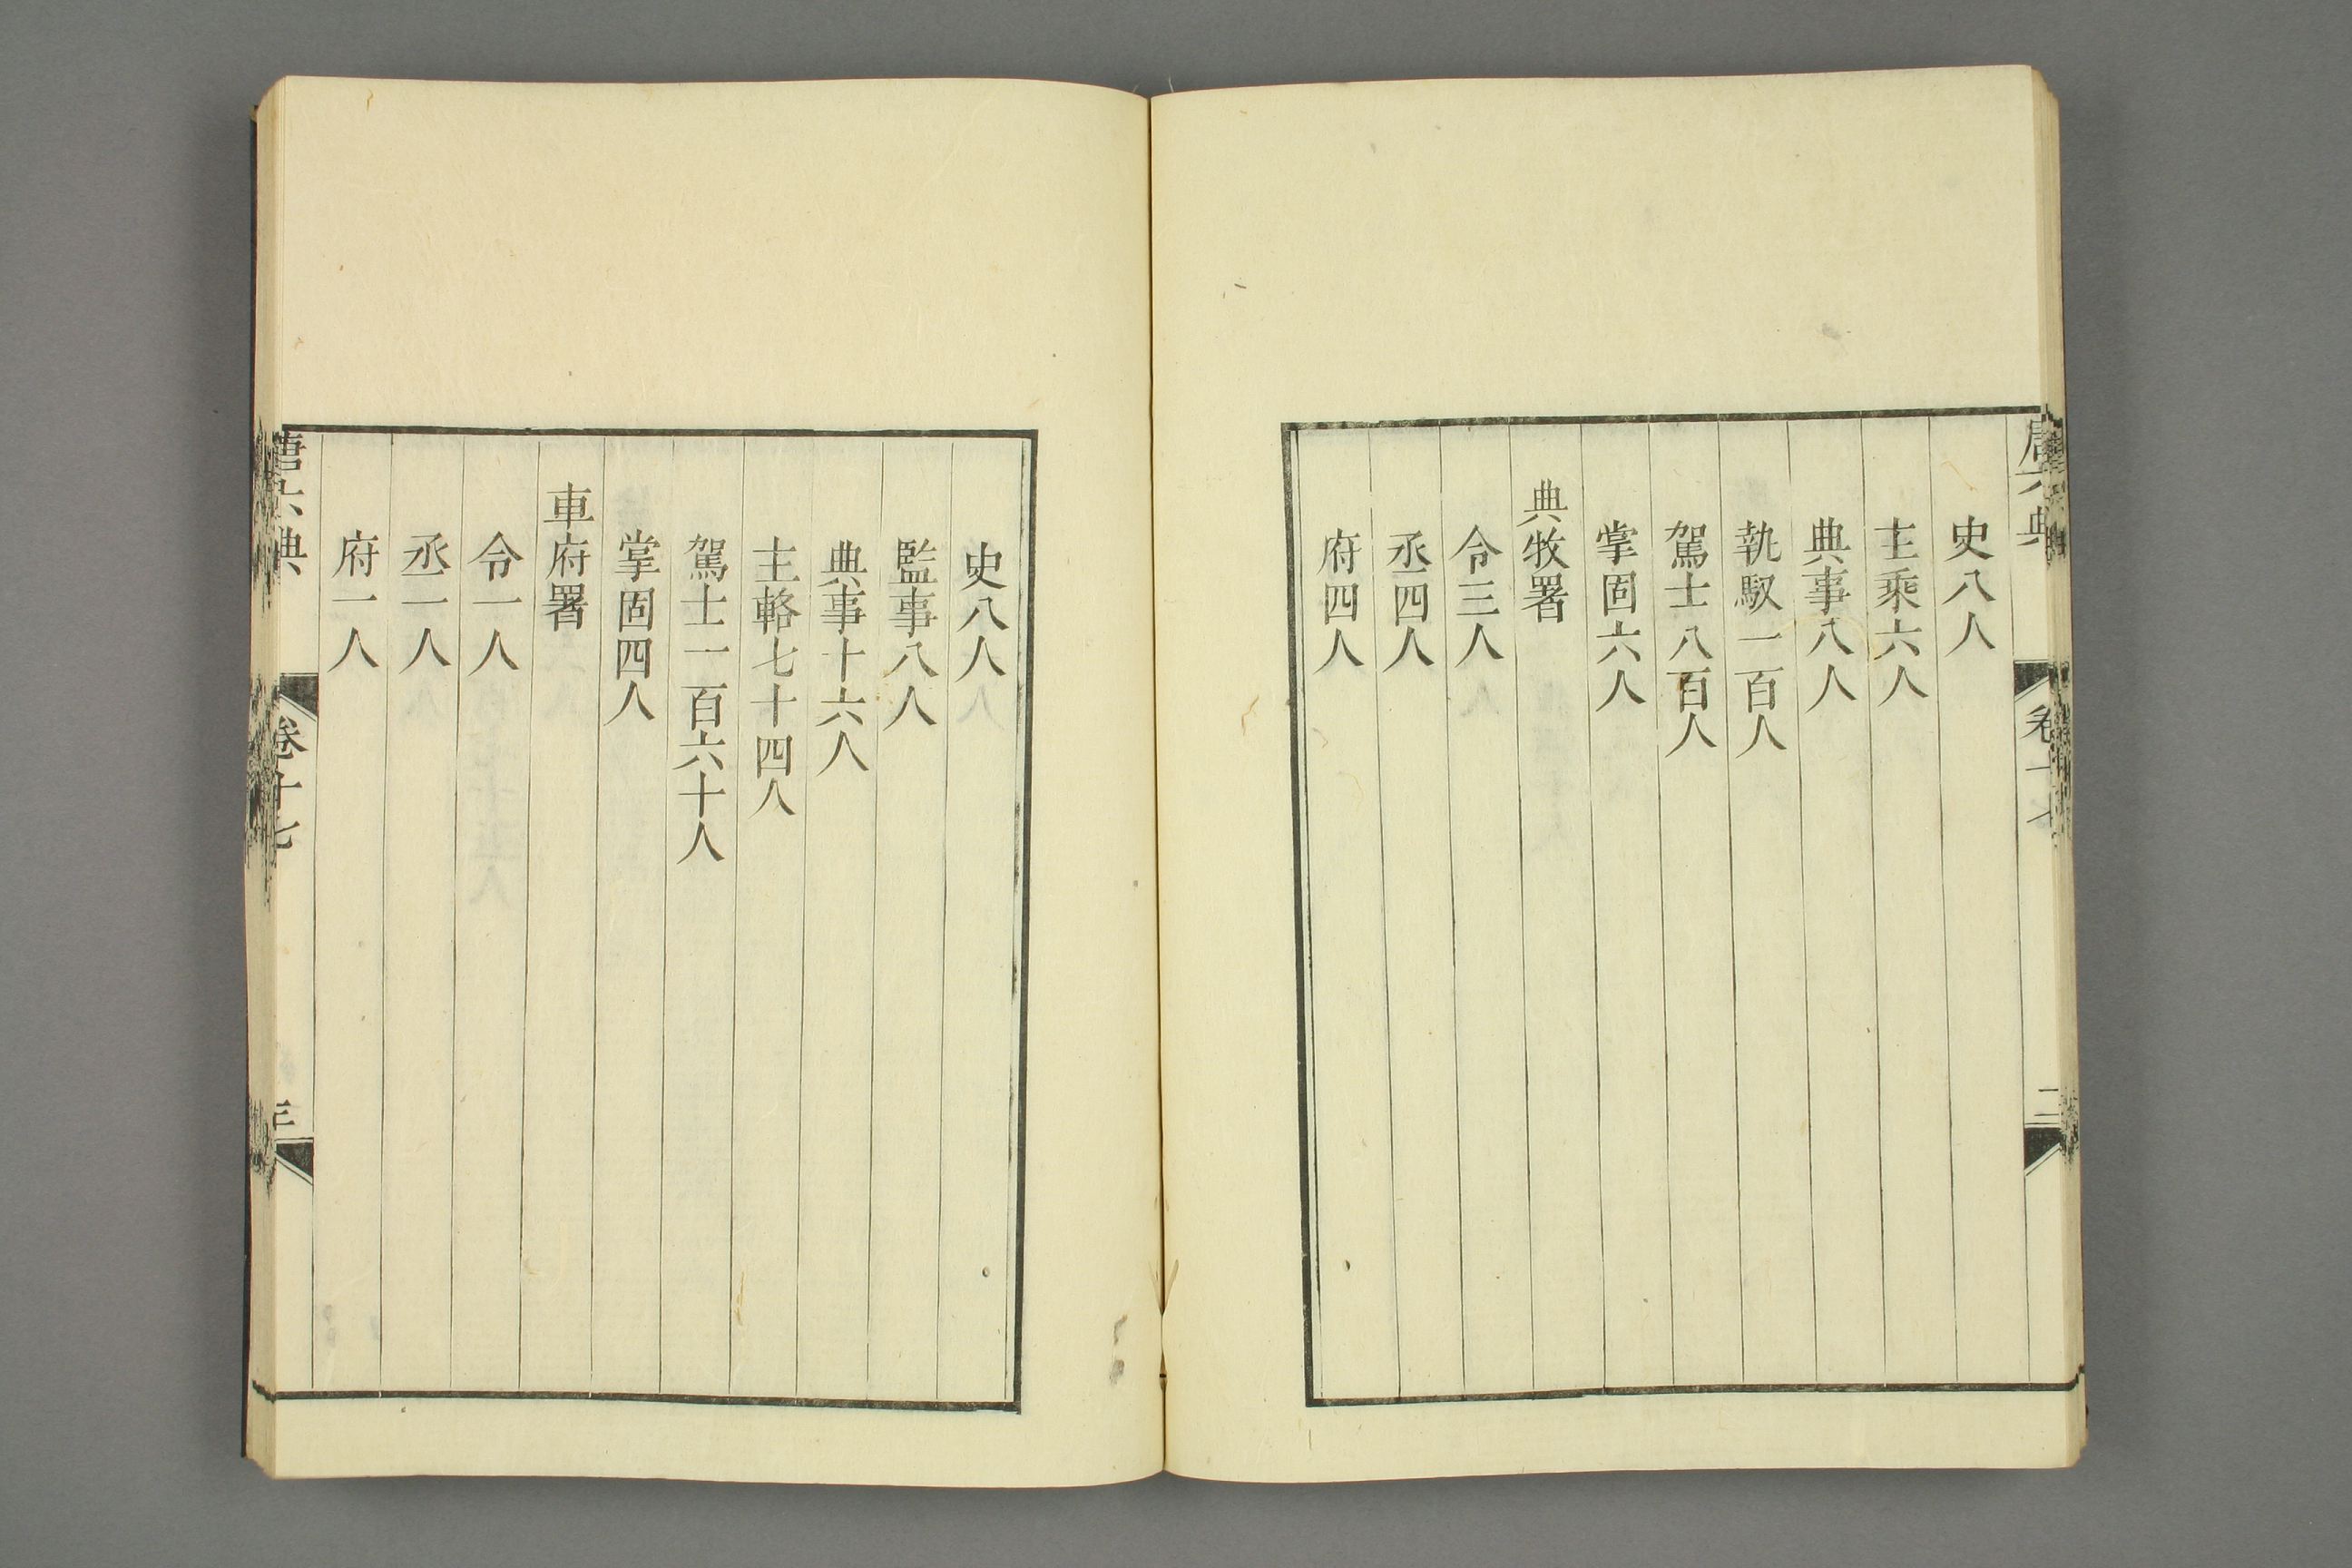 唐六典 卷十七 二
史八人
主乘六人
典事八人
執馭一百人
駕士八百人
掌固六人
典牧署
令三人
丞四人
府四人
史八人
監事八人
典事十六人
主輅七十四人
駕士一百六十人
掌固四人
車府署
令一人
丞一人
府一人
唐六典 卷十七 三